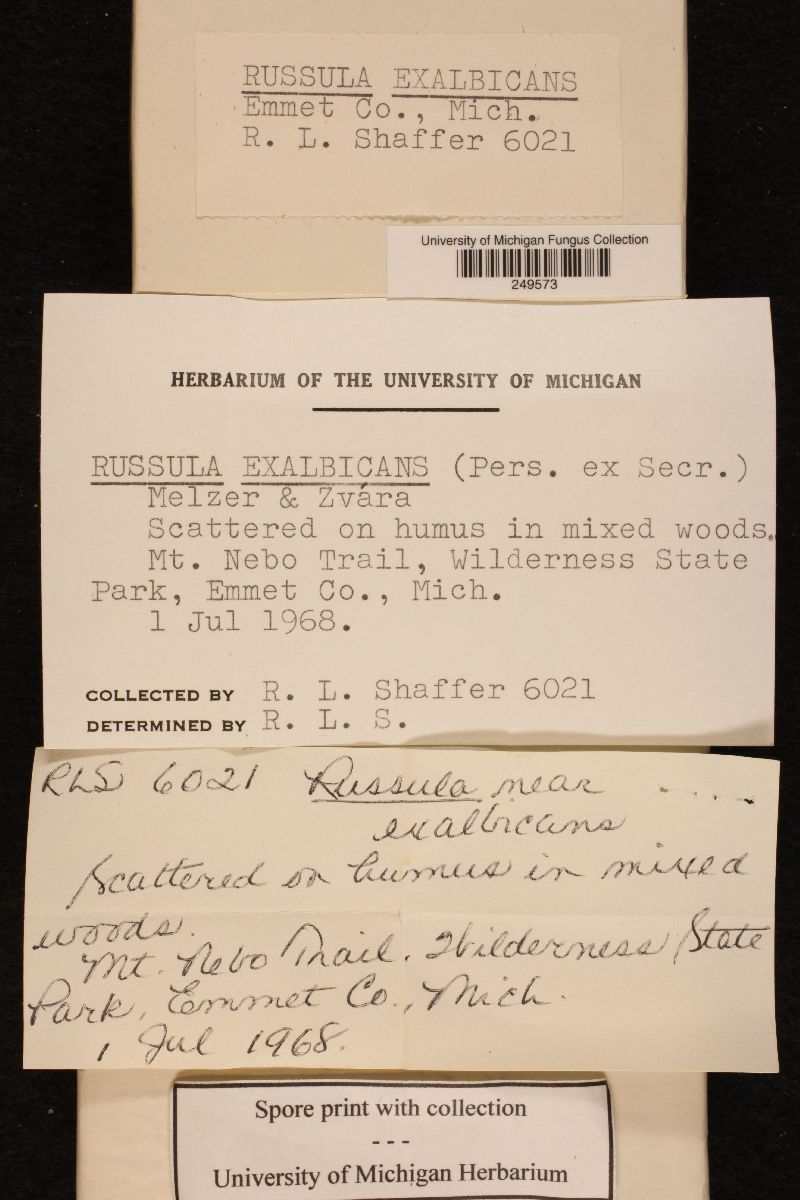 RUSSULA EXALBICANS
Emmet Co., Mich.
R. L. Shaffer 6021
University of Michigan Fungus Collection
249573
HERBARIUM OF THE UNIVERSITY OF MICHIGAN
RUSSULA EXALBICANS (Pers. ex Secr.)
Melzer & Zvára
Scattered on humus in mixed woods.
Mt. Nebo Trail, Wilderness State
Park, Emmet Co., Mich.
1 Jul 1968.
COLLECTED BY R. L. Shaffer 6021
DETERMINED BY R. L. S.
RLS 6021 Russula near
exalbicans
Scattered on humus in mixed
woods.
Mt. Nebo Trail. Wilderness State
Park, Emmet Co., Mich.
1 Jul 1968.
Spore print with collection
---
University of Michigan Herbarium